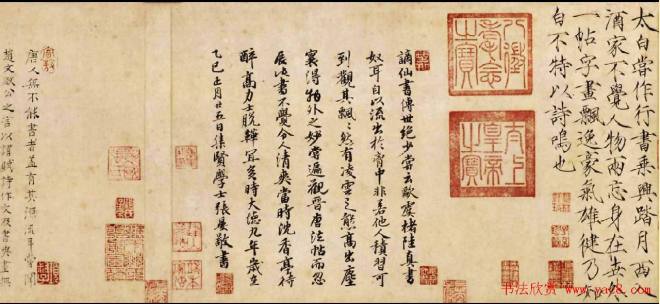 太白嘗作行書乘興踏月西入
酒家不覺人物兩忘身在世外
一帖字畫飄逸豪氣雄健乃知
白不特以詩鳴也
八徵耄念之寶
太上皇帝之寶
謫仙書傳世絕少嘗云歐虞褚陸真書
奴耳自以流出於胷中非若他人積習可
到觀其飄飄然有凌雲之態高出塵
寰得物外之妙嘗遍觀晉唐法帖而忽
展此書不覺令人清爽當時沈香亭待
醉高力士脫鞾宜矣時大德九年歲在
乙巳正月廿五日集賢學士張晏敬書
唐人無不能書者蓋有其源流耳嘗聞
趙文敏公之言以謂賦詩作文及書與畫無
书法欣赏www.yac8.com